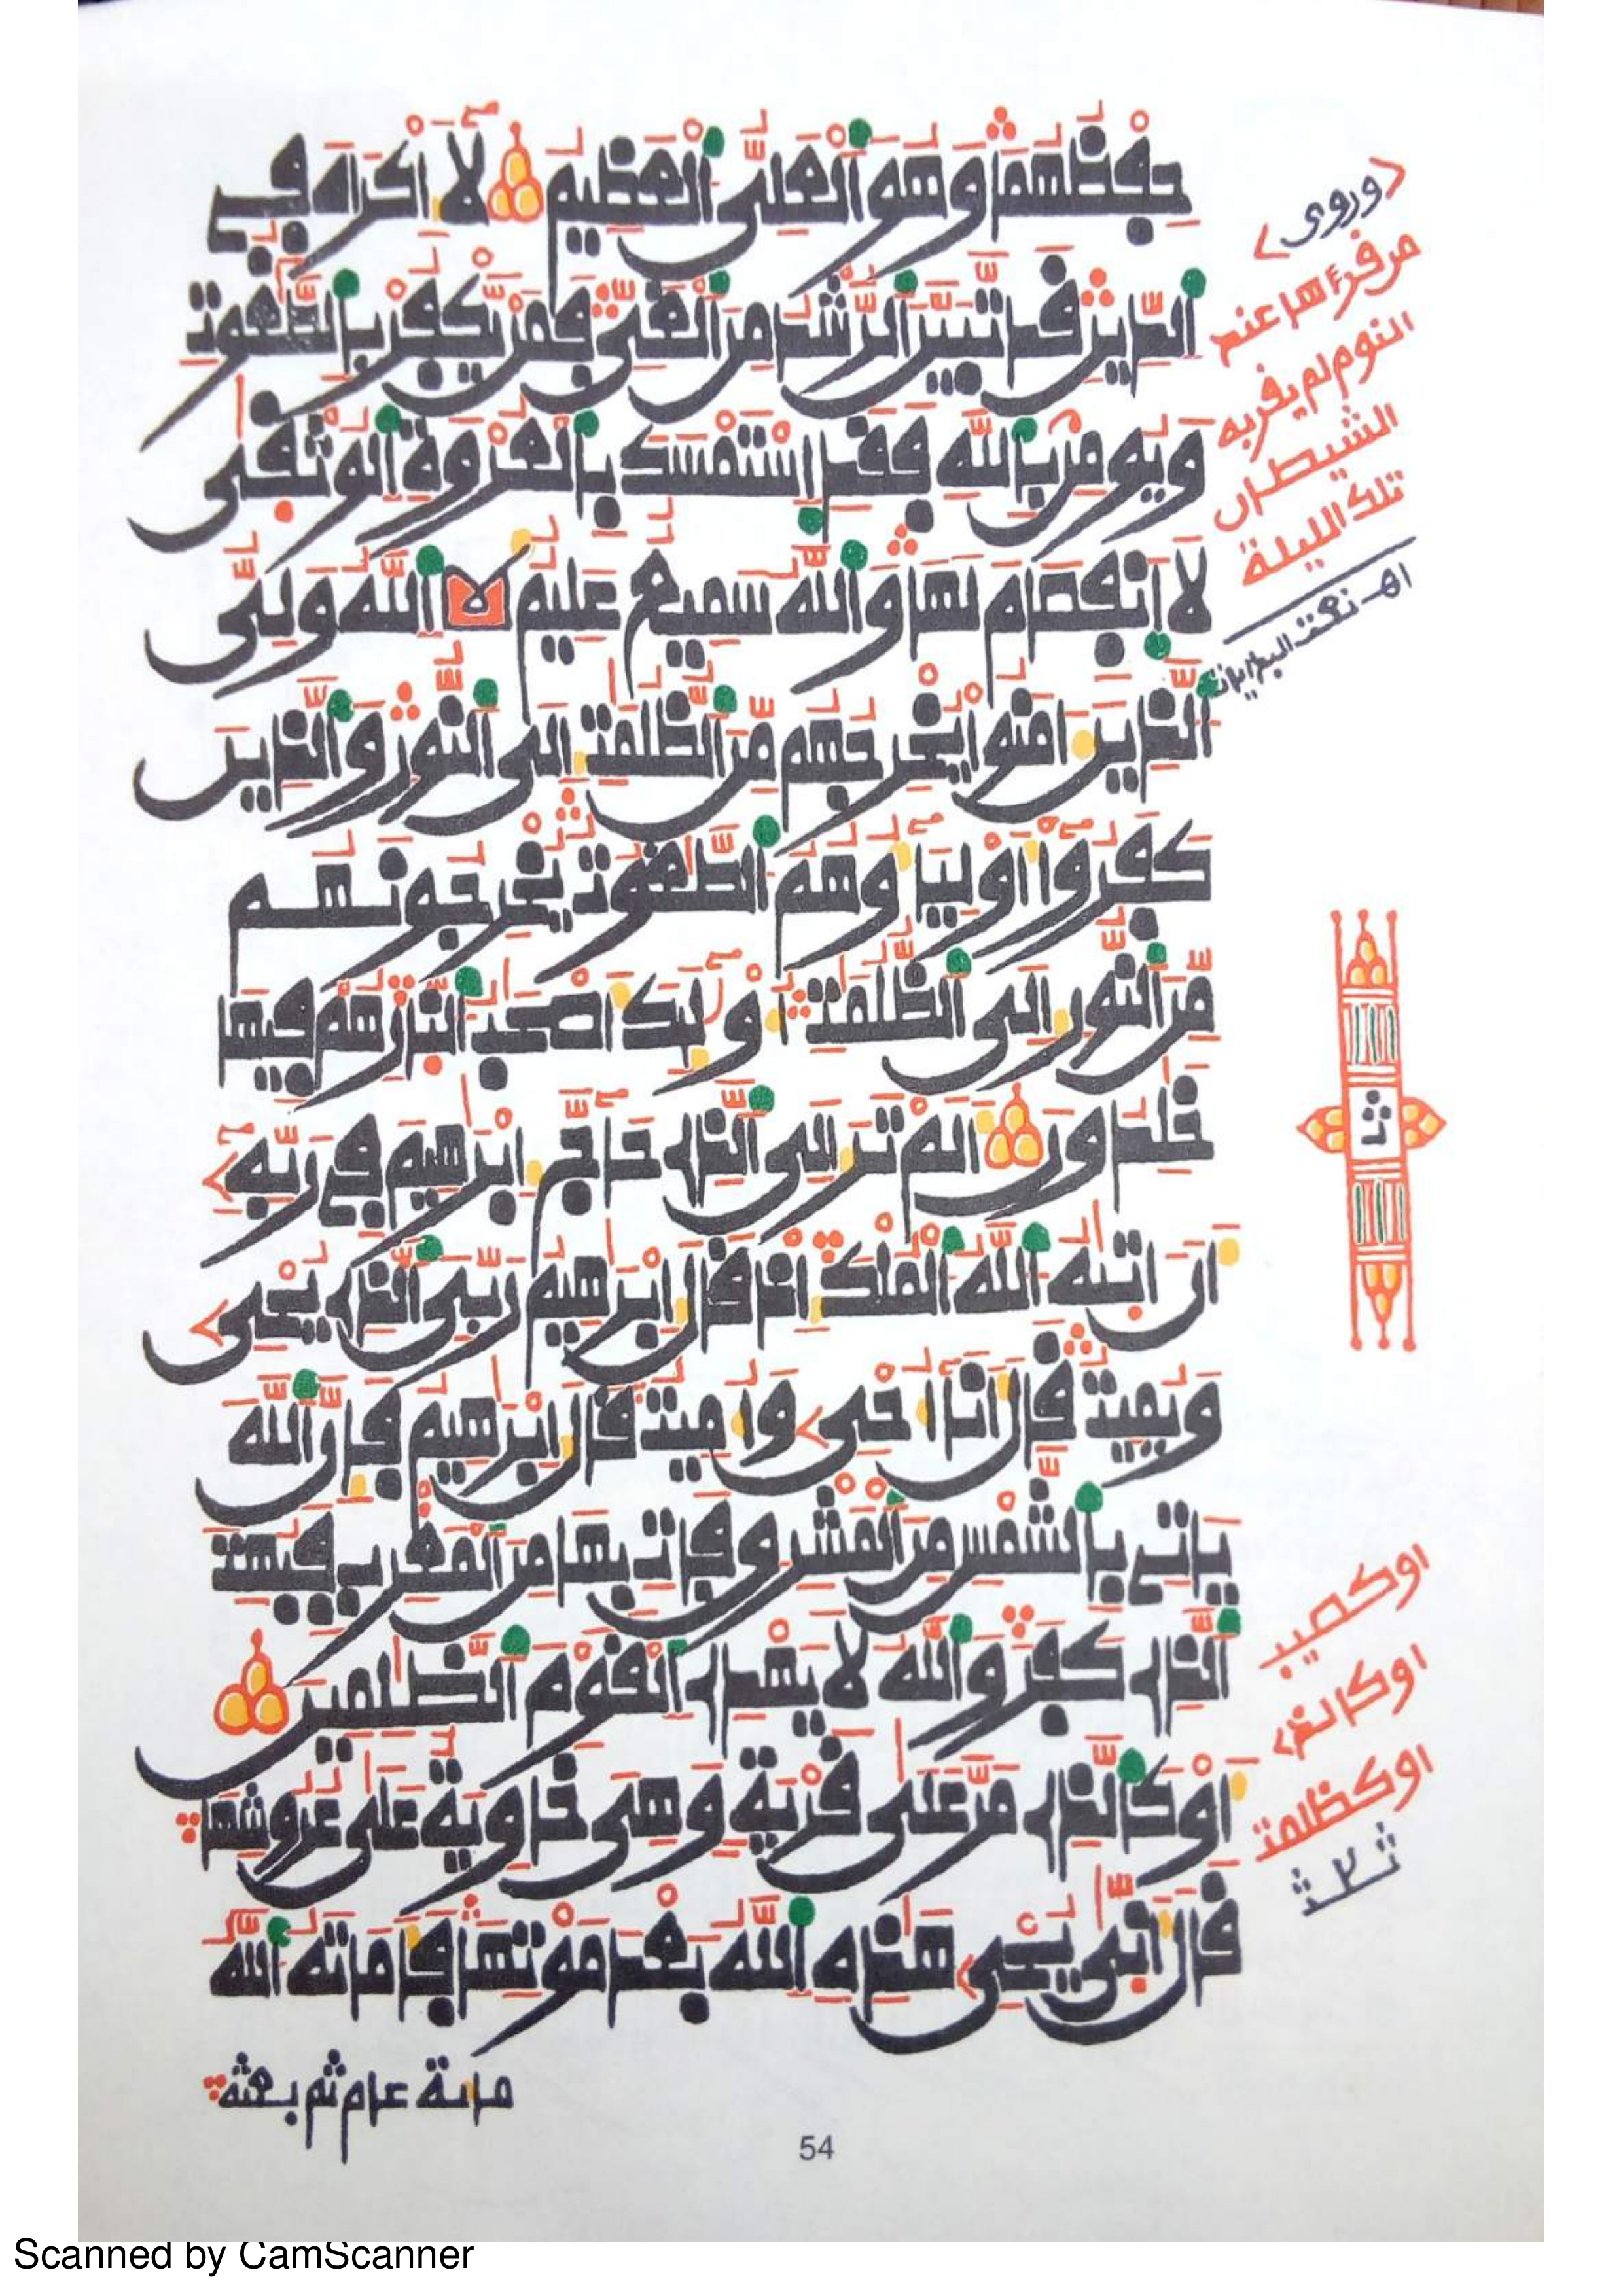 حفظهما وهو العلي العظيم لا اكراه في
الدين قد تبين الرشد من الغي فمن يكفر بالطغوت
ويومن بالله فقد استمسك بالعروة الوثقى
لا انفصام لها والله سميع عليم الله ولي
الذين امنوا يخرجهم من الظلمت الى النور والذين
كفروا اولياؤهم الطغوت يخرجونهم
من النور الى الظلمت اولئك اصحب النار هم فيها
خلدون الم تر الى الذي حاج ابرهيم في ربه
ان اتيه الله الملك اذ قال ابرهيم ربي الذي يحي
ويميت قال انا احي واميت قال ابرهيم فان الله
ياتي بالشمس من المشرق فات بها من المغرب فبهت
الذي كفر والله لا يهدي القوم الظلمين
او كالذي مر على قرية وهي خاوية على عروشها
قال انى يحي هذه الله بعد موتها فاماته الله
ماية عام ثم بعثه
(وروى)
من قرءها عند
النوم لم يقربه
الشيطان
تلك الليلة
اهـ نعت البدايات
ثمن
او كصيب
او كالذي
او كظلمت
54
Scanned by CamScanner